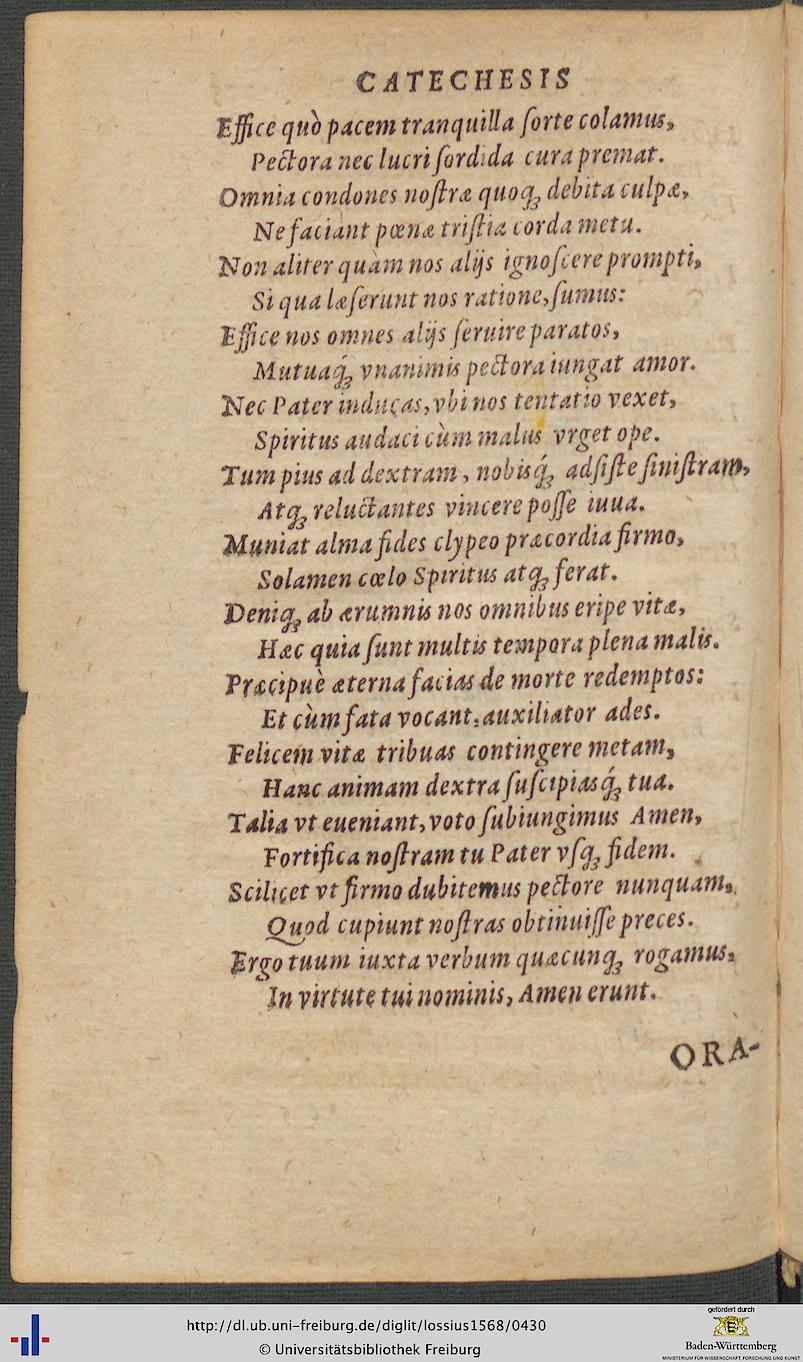 CATECHESIS
Effice quò pacem tranquilla ſorte colamus,
Pectora nec lucri ſordida cura premat.
Omnia condones noſtræ quoq; debita culpæ,
Ne faciant pœnæ triſtia corda metu.
Non aliter quàm nos alijs ignoſcere prompti,
Si qua læſerunt nos ratione, ſumus:
Effice nos omnes alijs ſeruire paratos,
Mutuaq́; vnanimis pectora iungat amor.
Nec Pater inducas, vbi nos tentatio vexet,
Spiritus audaci cùm malus vrget ope.
Tum pius ad dextram, nobisq́; adſiſte ſiniſtram,
Atq; reluctantes vincere poſſe iuua.
Muniat alma fides clypeo præcordia firmo,
Solamen cœlo Spiritus atq; ferat.
Deniq; ab ærumnis nos omnibus eripe vitæ,
Hæc quia ſunt multis tempora plena malis.
Præcipuè æterna facias de morte redemptos:
Et cùm fata vocant, auxiliator ades.
Felicem vitæ tribuas contingere metam,
Hanc animam dextra ſuſcipiasq́; tua.
Talia vt eueniant, voto ſubiungimus Amen,
Fortifica noſtram tu Pater vſq; fidem.
Scilicet vt firmo dubitemus pectore nunquam,
Quod cupiunt noſtras obtinuiſſe preces.
Ergo tuum iuxta verbum quæcunq; rogamus,
In virtute tui nominis, Amen erunt.
ORA-
http://dl.ub.uni-freiburg.de/diglit/lossius1568/0430
© Universitätsbibliothek Freiburg
gefördert durch
Baden-Württemberg
MINISTERIUM FÜR WISSENSCHAFT, FORSCHUNG UND KUNST